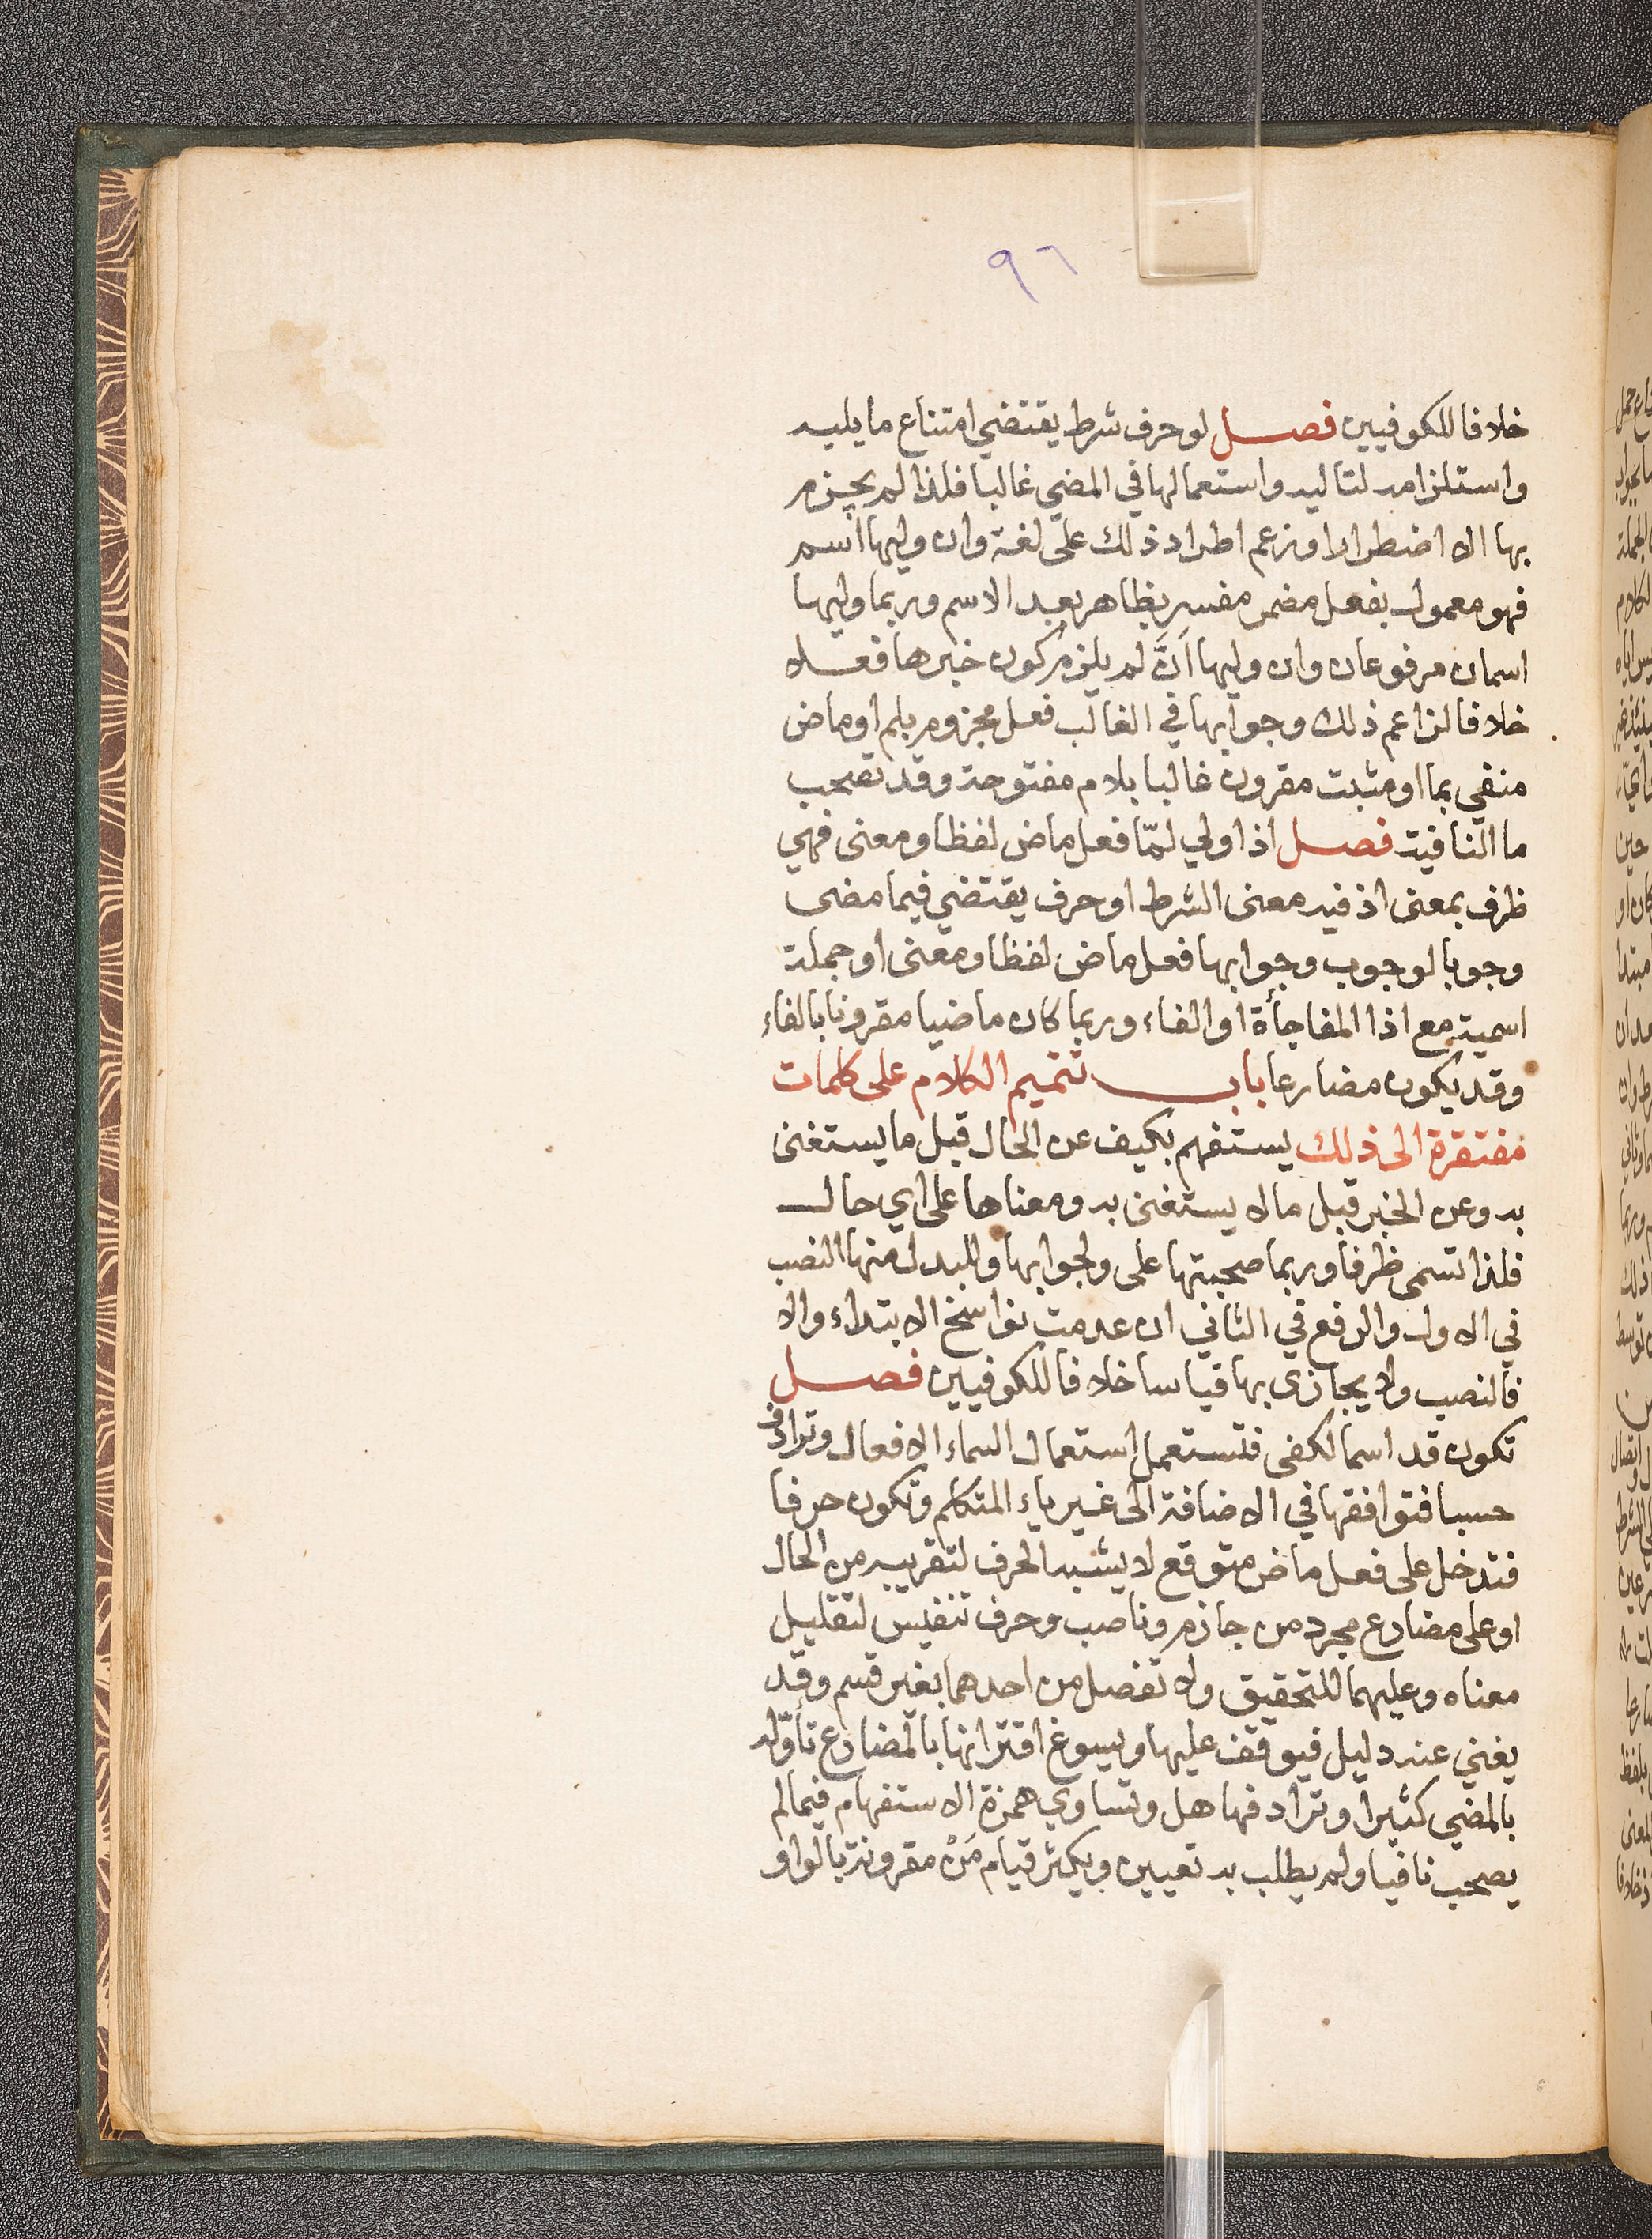 ٩٦
خلافا للكوفيين فصل لو حرف شرط يقتضي امتناع ما يليه
واستلزامه لتاليه واستعمالها في المضي غالبا فلذا لم يجزم
بها الا اضطرارا وزعم اطراد ذلك على لغة وان وليها اسم
فهو معمول بفعل مضمر مفسر بظاهر بعد الاسم وربما وليها
اسمان مرفوعان وان وليها اَنَّ لم يلزم كون خبرها فعلا
خلافا لزاعم ذلك وجوابها في الغالب فعل مجزوم بلم او ماض
منفي بما او مثبت مقرون غالبا بلام مفتوحة وقد تصحب
ما النافية فصل اذا ولي لمّا فعل ماض لفظا ومعنى فهي
ظرف بمعنى اذ فيه معنى الشرط او حرف يقتضي فيما مضى
وجوبا لوجوب وجوابها فعل ماض لفظا ومعنى او جملة
اسمية مع اذا المفاجأة او الفاء وربما كان ماضيا مقرونا بالفاء
وقد يكون مضارعا باب تتميم الكلام على كلمات
مفتقرة الى ذلك يستفهم بكيف عن الحال قبل ما يستغنى
به وعن الخبر قبل ما لا يستغنى به ومعناها على اي حال
فلذا تسمى ظرفا وربما صحبتها على ولجوابها وللبدل منها النصب
في الاول والرفع في الثاني ان عدمت نواسخ الابتداء والا
فالنصب ولا يجازى بها قياسا خلافا للكوفيين فصل
تكون قد اسما لكفى فتستعمل استعمال اسماء الافعال وترادف
حسبا فتوافقها في الاضافة الى غير ياء المتكلم وتكون حرفا
فتدخل على فعل ماض متوقع لا يشبه الحرف لتقريبه من الحال
او على مضارع مجرد من جازم وناصب وحرف تنفيس لتقليل
معناه وعليهما للتحقيق ولا تفصل من احدهما بغير قسم وقد
يغني عنه دليل فيوقف عليها ويسوغ اقترانها بالمضارع تأوّله
بالمضي كثيرا وترادفها هل وتساوي همزة الاستفهام فيما لم
يصحب نافيا ولم يطلب به تعيين ويكثر قيام مَنْ مقرونة بالواو